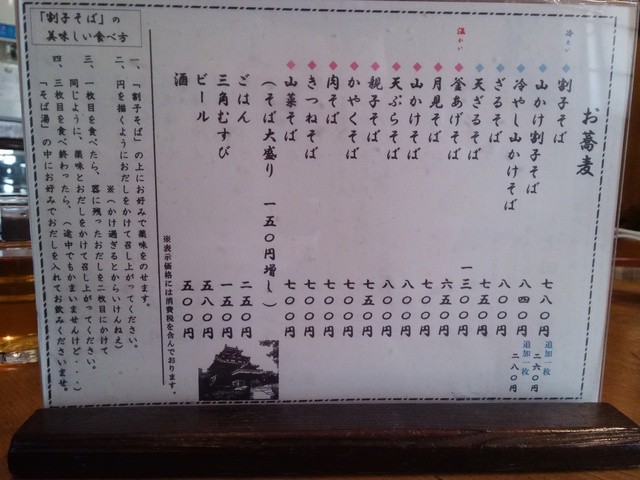 お蕎麦
冷たい
割子そば 七八〇円 追加一枚 二六〇円
山かけ割子そば 八四〇円 追加一枚 二八〇円
冷やし山かけそば 八〇〇円
ざるそば 七五〇円
天ざるそば 一三〇〇円
温かい
釜あげそば 六五〇円
月見そば 七〇〇円
山かけそば 八〇〇円
天ぷらそば 八〇〇円
親子そば 七五〇円
かやくそば 七〇〇円
肉そば 七〇〇円
きつねそば 七〇〇円
山菜そば 七〇〇円
（そば大盛り 一五〇円増し）
ごはん 二五〇円
三角むすび 一五〇円
ビール 五八〇円
酒 五〇〇円
※表示価格には消費税を含んでおります。
「割子そば」の
美味しい食べ方
一、「割子そば」の上にお好みで薬味をのせます。
二、円を描くようにおだしをかけて召し上がってください。
※（かけ過ぎるとからいけんねえ）
三、一枚目を食べたら、器に残ったおだしを二枚目にかけて
同じように、薬味とおだしをかけて召し上がってください。
四、三枚目を食べ終わったら、（途中でもかまいませんけど・・・）
「そば湯」の中にお好みでおだしを入れてお飲みくださいませ。